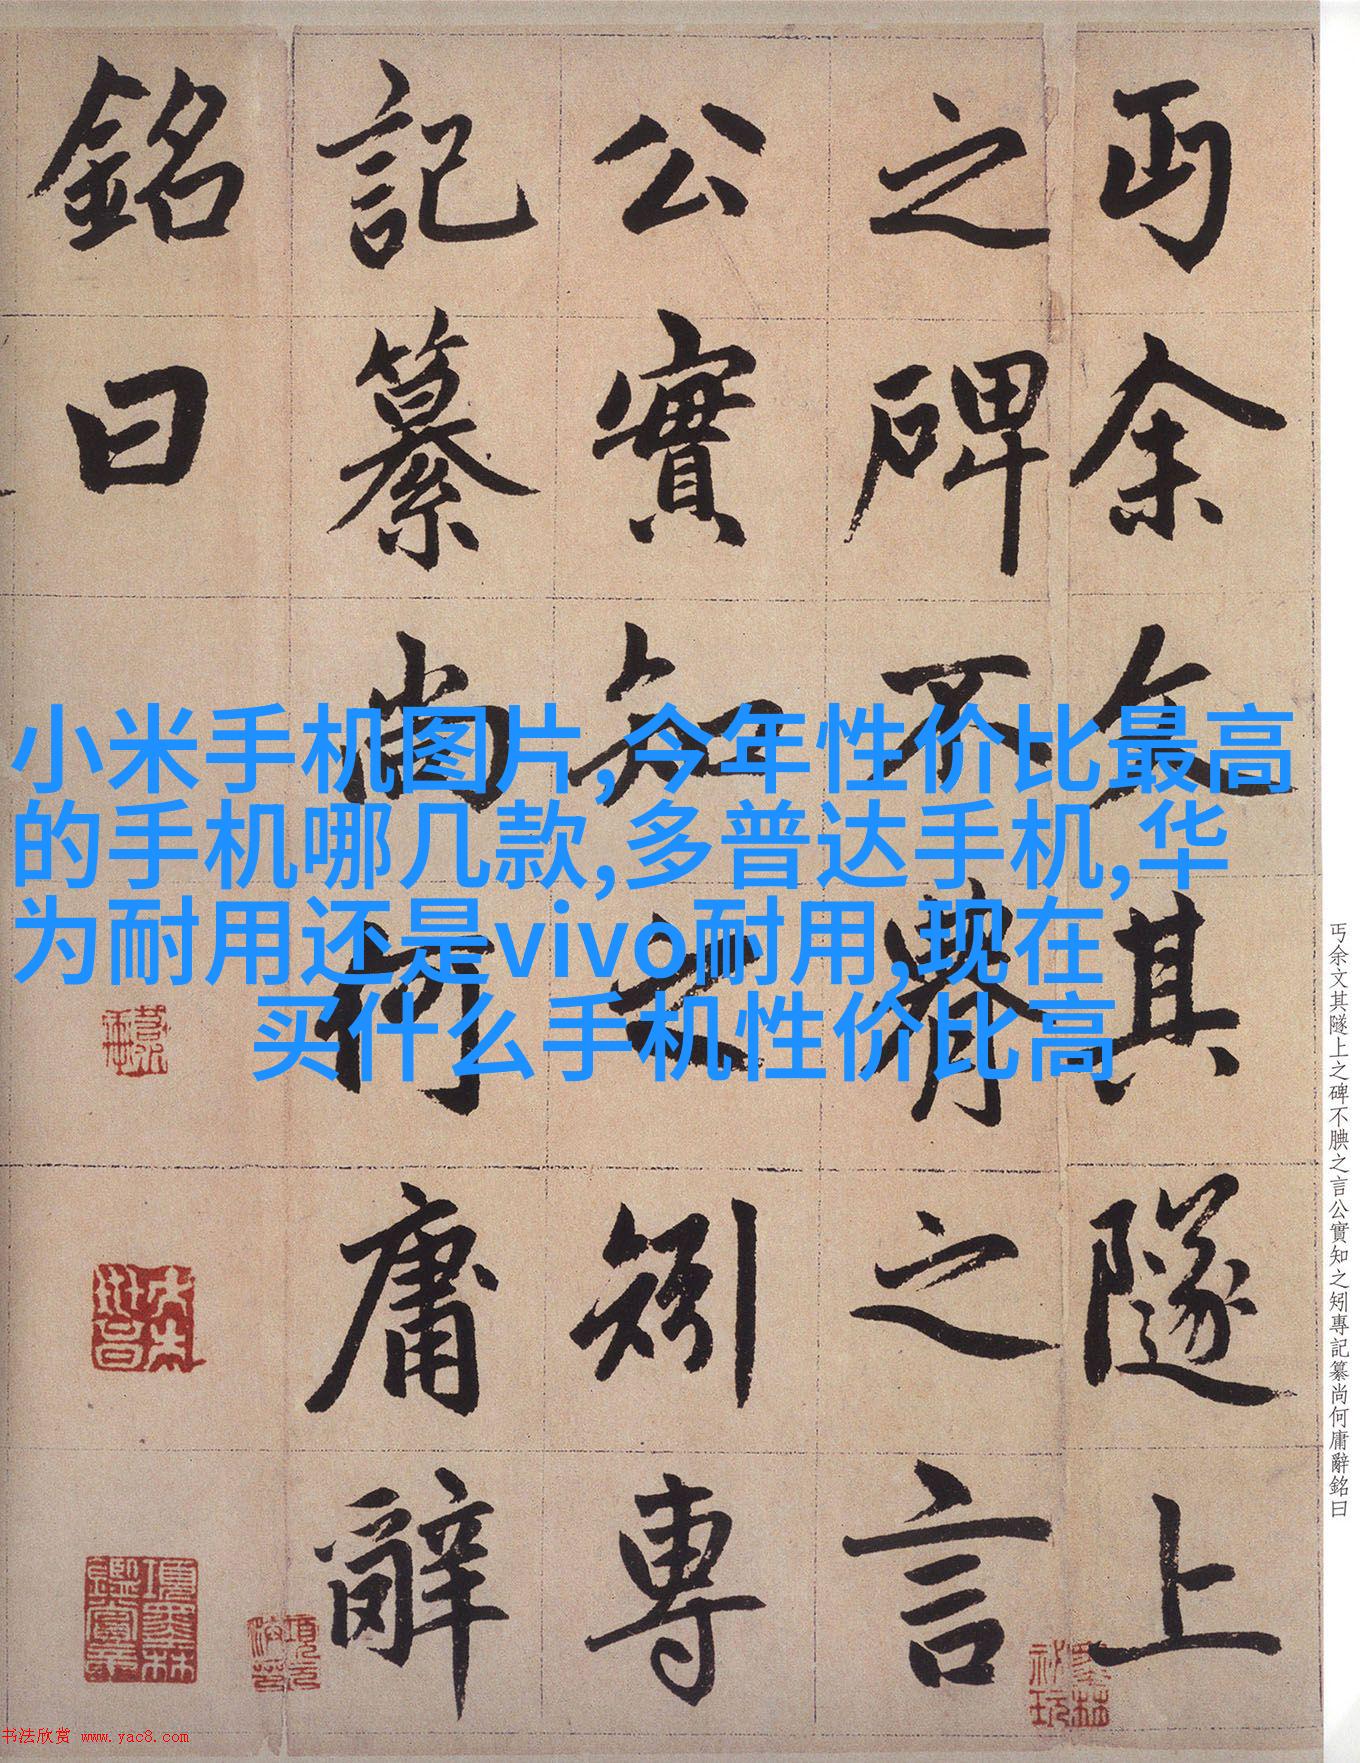 丏余文其隧上
之碑不腆之言
公實知之矧專
記纂尚何庸辭
銘曰
小米手机图片,今年性价比最高
的手机哪几款,多普达手机,华
为耐用还是vivo耐用,现在
买什么手机性价比高
丐余文其隧上之碑不腆之言公實知之矧專記纂尚何庸辭銘曰
书法欣赏 www.yac8.com